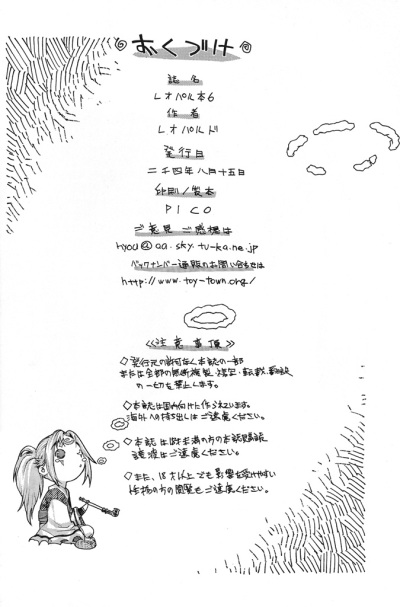 おくづけ
誌名
レオパル本6
作者
レオパルド
発行日
二千四年八月十五日
印刷/製本
PICO
ご意見ご感想は
hyou@aa.sky.tu-ka.ne.jp
バックナンバー通販のお問い合せは
http://www.toy-town.org/
≪注意事項≫
◇発行元の許可なく本誌の一部
または全部の無断複製・転載・
の一切を禁止します。
◇本誌は国内向けに作られています。
海外への持ち出しはご遠慮ください。
◇本誌は18才未満の方の本誌閲覧
譲渡はご遠慮ください。
◇また、18才以上でも影響を受けやすい
性格の方の閲覧もご遠慮ください。